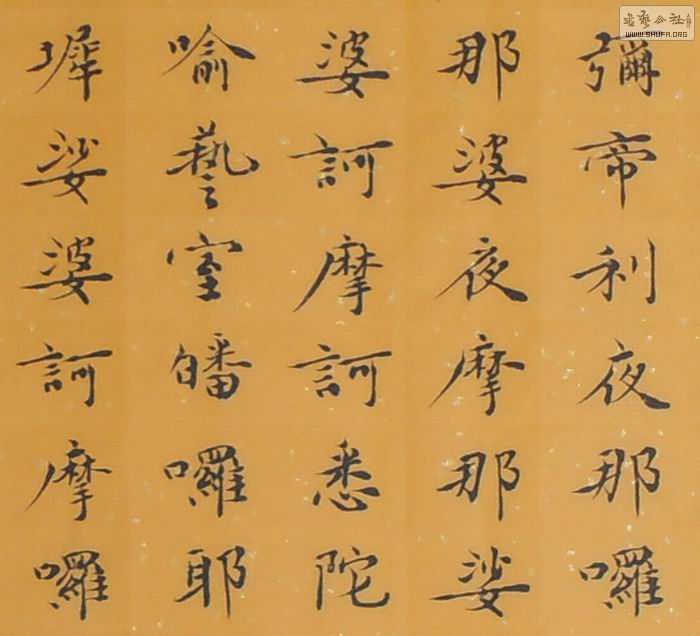 彌帝利夜那囉
那婆夜摩那娑
婆訶摩訶悉陀
喻藝室皤囉耶
墀娑婆訶摩囉
書藝公社
WWW.SHUFA.ORG